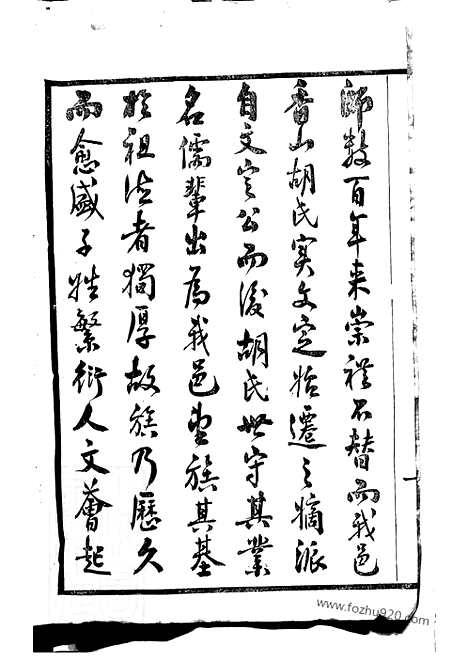 師數百年来崇禮不替而我邑
香山胡氏實文定始遷之嫡派
自文定公而後胡氏世守其業
名儒輩出為我邑望族其基
於祖法者獨厚故族乃歷久
而愈盛子姓繁衍人文薈起
www.fozhu920.com